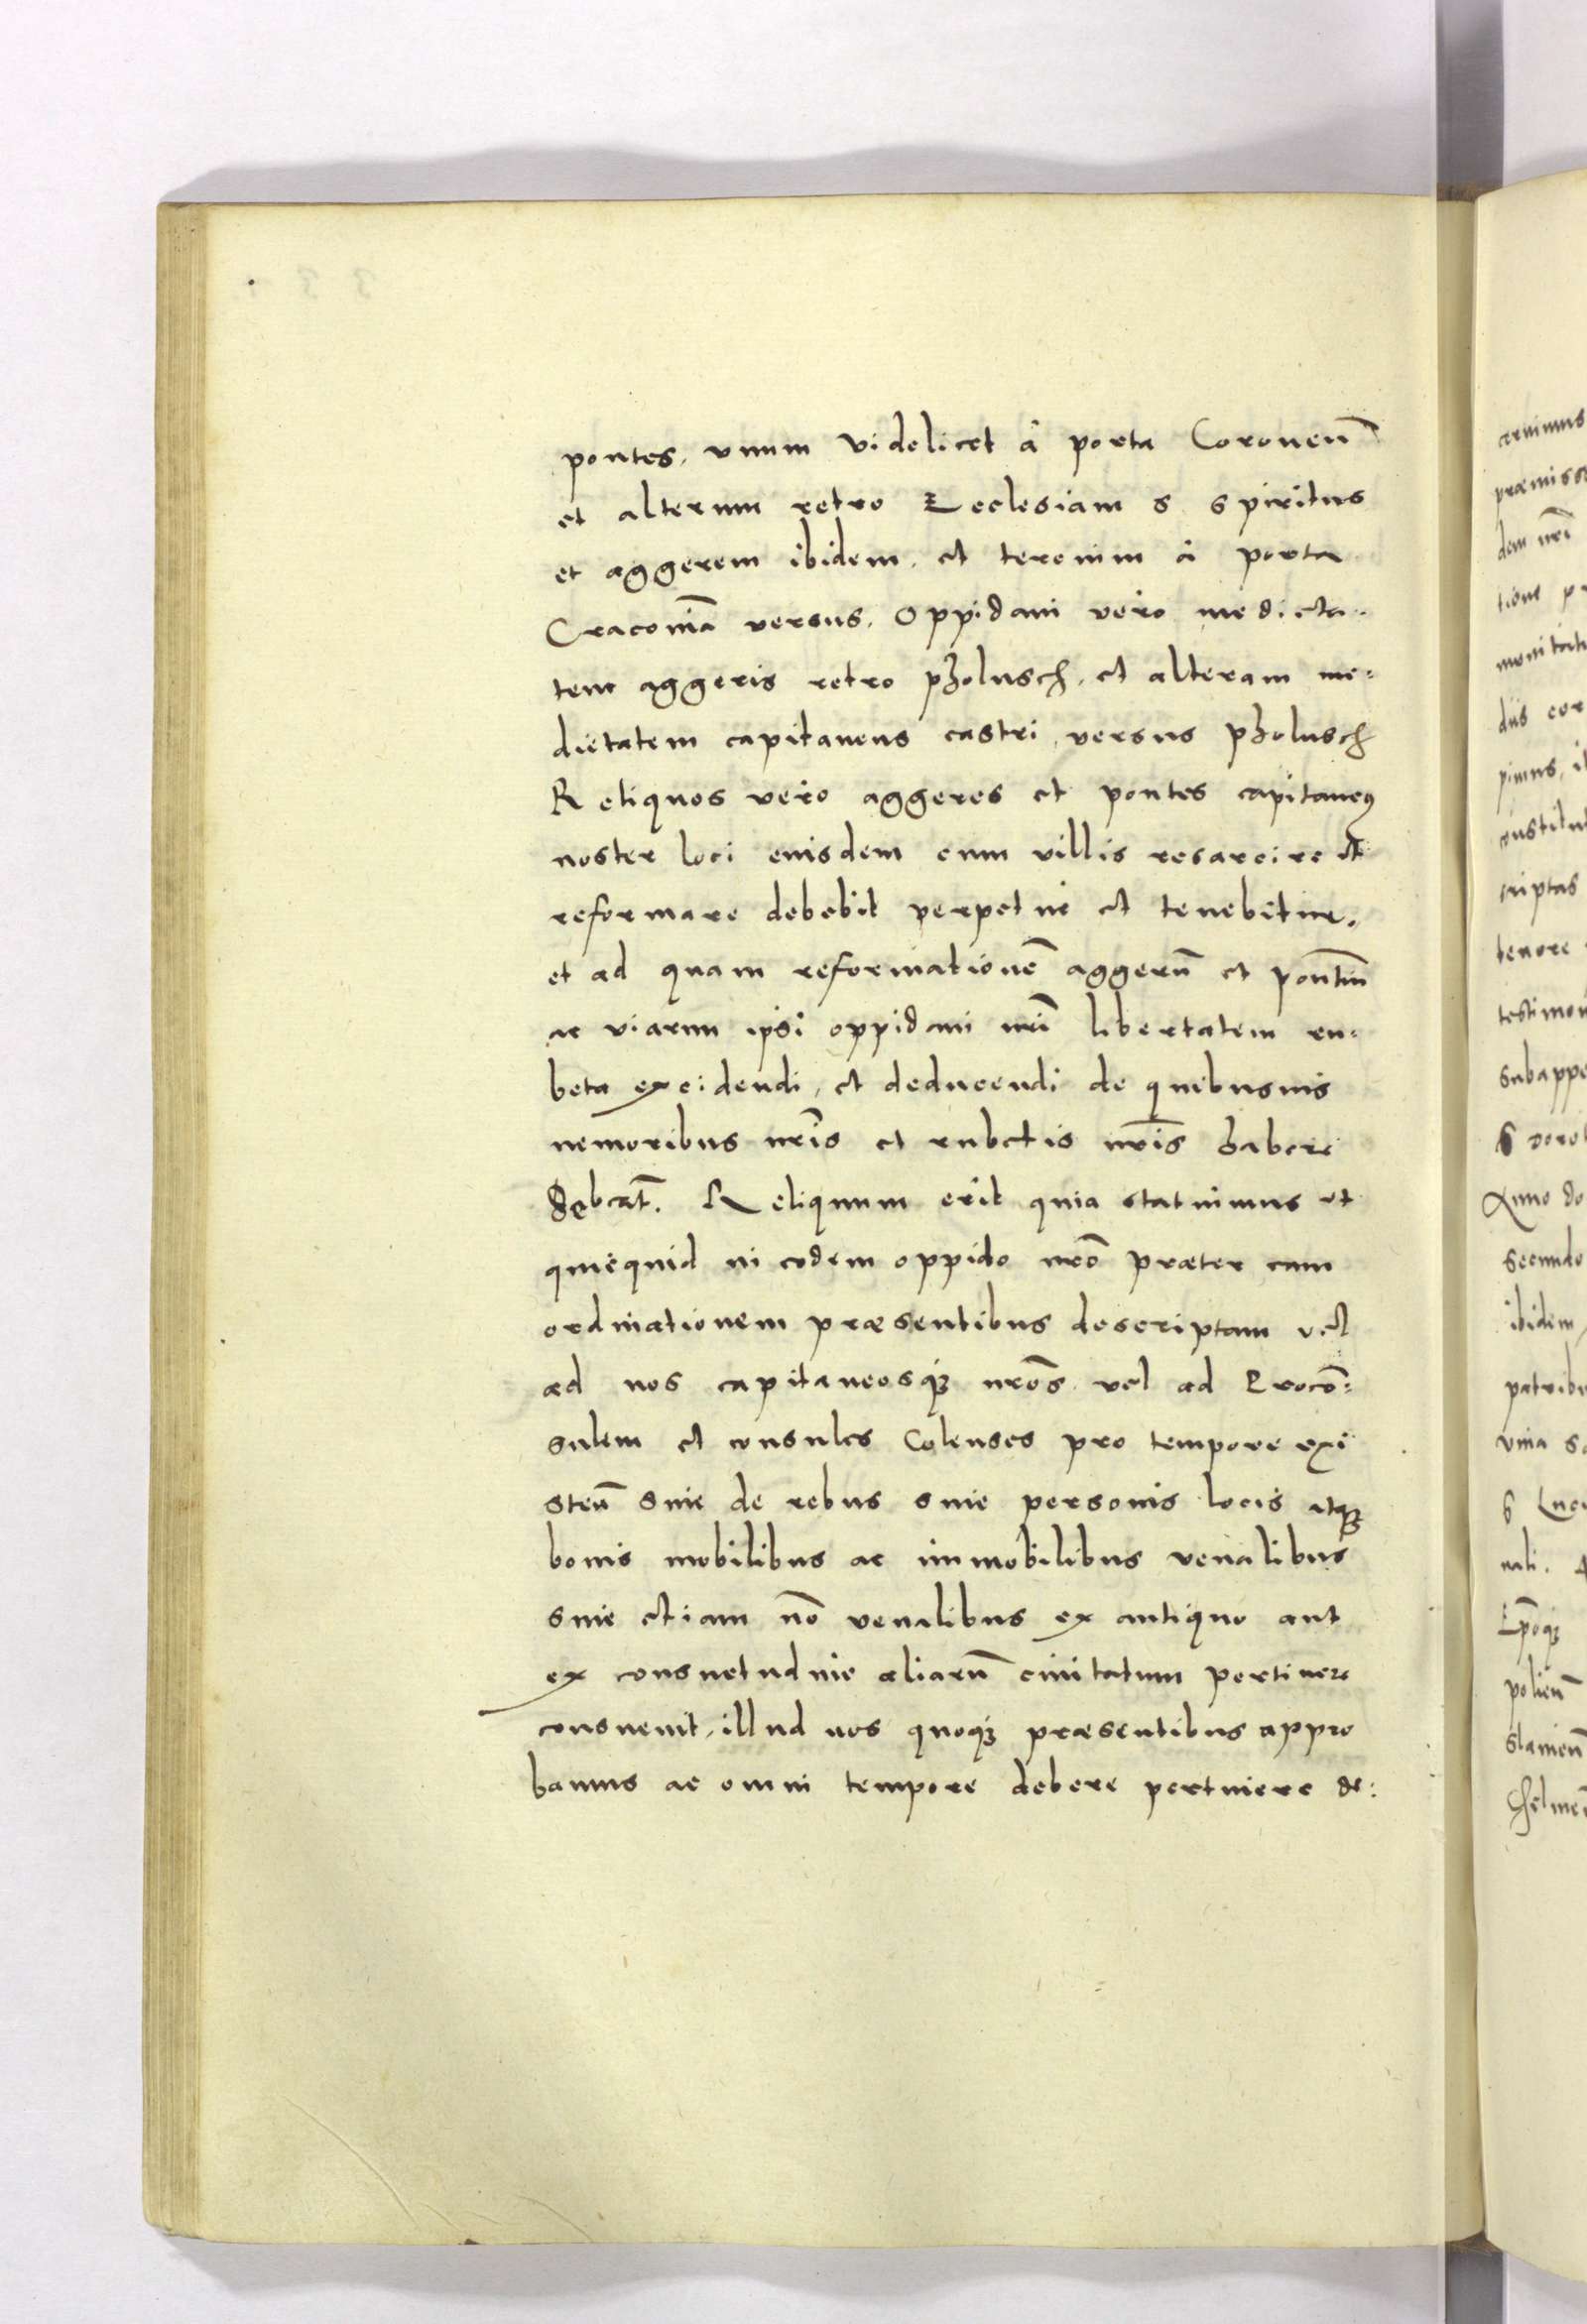 pontes, vnum videlicet â porta Coronen̄
et alterum retro Ecclesiam s spiritus
et aggerem ibidem, et tercium â porta
Cracoviā versus. Oppidani vero medieta-
tem aggeris retro pholusch, et alteram me-
dietatem capitaneus castri versus pholusch
Reliquos vero aggeres et pontes capitaneꝰ
noster loci eiusdem cum villis resarcire et
reformare debebit perpetue et tenebitur.
et ad quam reformationē aggerū et pontiū
ac viarum ipsi oppidani nr̄i libertatem ru-
beta excidendi, et deducendi de quibusuis
nemoribus nr̄is et rubetis nr̄is habere
debeāt. Reliquum erit quia statuimus ut
quicquid in eodem oppido nr̄o præter eam
ordinationem præsentibus descriptam vel
ad nos capitaneosqꝫ nr̄os vel ad Procō-
sulem et consules Colenses pro tempore exi
steñ siue de rebus siue personis locis atqꝫ
bonis mobilibus ac immobilibus venalibus
siue etiam nō venalibus ex antiquo aut
ex consuetudine aliarū ciuitatum pertinere
consueuit, illud nos quoqꝫ præsentibus appro
bamus ac omni tempore debere pertinere de:
cernimus
præmiss
dem nr̄i
tione pr
diis cor
pimus, i
constitut
criptas
tenore
testimon
subappe
Anno do
secundo
ibidem,
patribu
Ep̄oqꝫ
polieñ
Chelmeñ